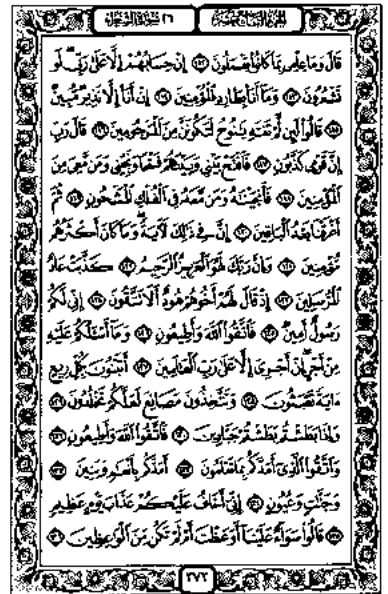 قَالَ وَمَا عِلْمِي بِمَا كَانُوا يَعْمَلُونَ ١١٢ إِنْ حِسَابُهُمْ إِلَّا عَلَىٰ رَبِّي لَوْ
تَشْعُرُونَ ١١٣ وَمَا أَنَا بِطَارِدِ الْمُؤْمِنِينَ ١١٤ إِنْ أَنَا إِلَّا نَذِيرٌ مُّبِينٌ
١١٥ قَالُوا لَئِن لَّمْ تَنتَهِ يَٰنُوحُ لَتَكُونَنَّ مِنَ الْمَرْجُومِينَ ١١٦ قَالَ رَبِّ
إِنَّ قَوْمِي كَذَّبُونِ ١١٧ فَافْتَحْ بَيْنِي وَبَيْنَهُمْ فَتْحًا وَنَجِّنِي وَمَن مَّعِيَ مِنَ
الْمُؤْمِنِينَ ١١٨ فَأَنجَيْنَٰهُ وَمَن مَّعَهُ فِي الْفُلْكِ الْمَشْحُونِ ١١٩ ثُمَّ
أَغْرَقْنَا بَعْدُ الْبَاقِينَ ١٢٠ إِنَّ فِي ذَٰلِكَ لَآيَةً وَمَا كَانَ أَكْثَرُهُم
مُّؤْمِنِينَ ١٢١ وَإِنَّ رَبَّكَ لَهُوَ الْعَزِيزُ الرَّحِيمُ ١٢٢ كَذَّبَتْ عَادٌ
الْمُرْسَلِينَ ١٢٣ إِذْ قَالَ لَهُمْ أَخُوهُمْ هُودٌ أَلَا تَتَّقُونَ ١٢٤ إِنِّي لَكُمْ
رَسُولٌ أَمِينٌ ١٢٥ فَاتَّقُوا اللَّهَ وَأَطِيعُونِ ١٢٦ وَمَا أَسْـَٔلُكُمْ عَلَيْهِ
مِنْ أَجْرٍ إِنْ أَجْرِيَ إِلَّا عَلَىٰ رَبِّ الْعَٰلَمِينَ ١٢٧ أَتَبْنُونَ بِكُلِّ رِيعٍ
ءَايَةً تَعْبَثُونَ ١٢٨ وَتَتَّخِذُونَ مَصَانِعَ لَعَلَّكُمْ تَخْلُدُونَ ١٢٩
وَإِذَا بَطَشْتُم بَطَشْتُمْ جَبَّارِينَ ١٣٠ فَاتَّقُوا اللَّهَ وَأَطِيعُونِ ١٣١
وَاتَّقُوا الَّذِي أَمَدَّكُم بِمَا تَعْلَمُونَ ١٣٢ أَمَدَّكُم بِأَنْعَٰمٍ وَبَنِينَ ١٣٣
وَجَنَّٰتٍ وَعُيُونٍ ١٣٤ إِنِّي أَخَافُ عَلَيْكُمْ عَذَابَ يَوْمٍ عَظِيمٍ
١٣٥ قَالُوا سَوَاءٌ عَلَيْنَا أَوَعَظْتَ أَمْ لَمْ تَكُن مِّنَ الْوَٰعِظِينَ ١٣٦
٣٧٢